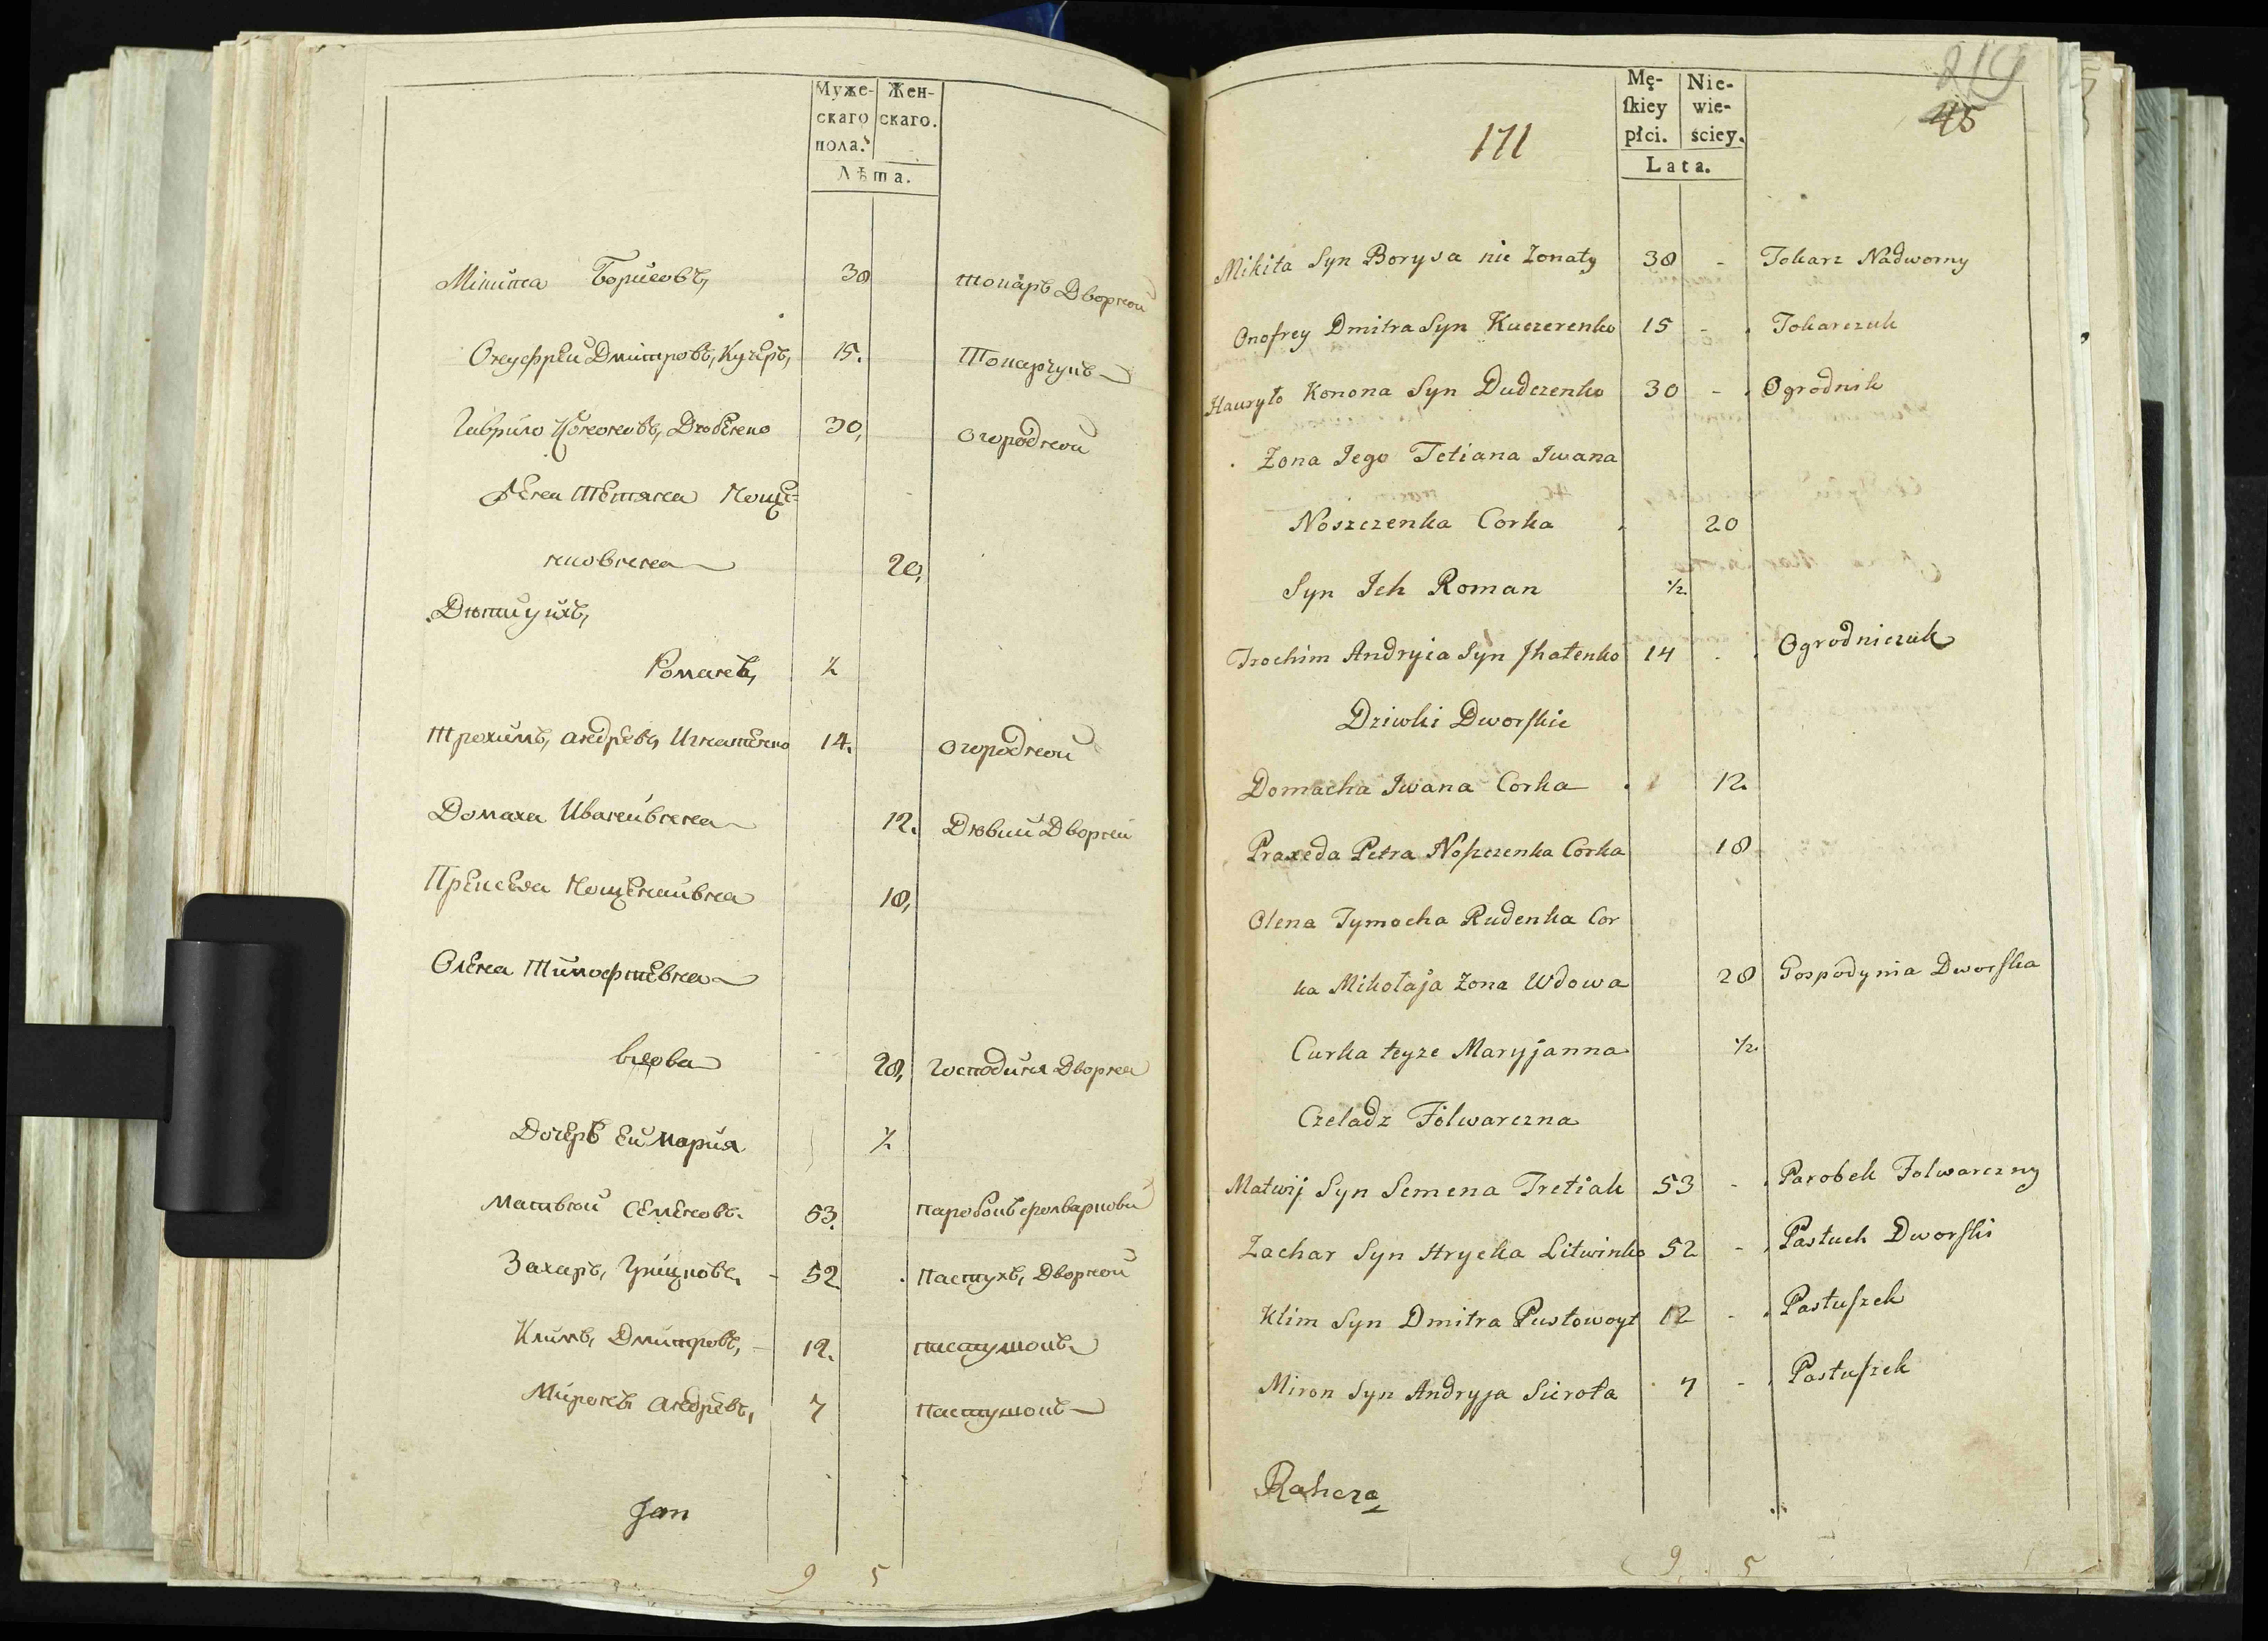 Муже-
скаго
пола.
Жен-
скаго.
Лѣта.
Микита Борисовъ, 38 токаръ Дворной
Онуфрей Дмитровъ, Кучеръ, 15. Токарчукъ
Гаврило Кононовъ, 30, огородной
Жена ТетянаНоще=
нковна 20,
Романъ, ½
Трохимъ, андреевъ, Игнатенко 14. огородной
Домаха Иванивна 12. Дѣвки Дворни
Нощенкивна 18,
Олена Тимофтевна
вдова 28, господиня Дворна
Дочеръ еи Мария ½
Матвѣй Семеновъ. 53. паробокъ фолварковй
Захаръ, Грицковъ, - 52 пастухъ, Дворной
Климъ, Дмитровъ, - 12. пастушокъ
Миронъ андреевъ, 7 пастушокъ
Jan
9 5
219
45
171
Mę-
skiey
płci.
Nie-
wie-
ściey.
Lata.
Mikita Syn Borysa nie Zonaty 38 - Tokarz Nadworny
Onofrey Dmitra Syn Kuczerenko 15 - Tokarczuk
Hauryło Konona Syn Dudczenko 30 - Ogrodnik
Zona Jego Tetiana Jwana
Noszczenka Corka 20
Syn Ich Roman ½
Trochim Andryia Syn Jhatenko 14 - Ogrodniczuk
Dziwki Dworskie
Domacha Jwana Corka 12
Praxeda Petra Noszczenka Corka 18
Olena Tymocha Rudenka Cor
ka Mikołaja Zona Wdowa 28 Gospodynia Dworska
Curka teyze Maryjanna ½
Czeladz Folwarczna
Matwij Syn Semena Tretiak 53 - Parobek Folwarczny
Zachar Syn Hrycka Litwinko 52 - Pastuch Dworski
Klim Syn Dmitra Pustowoyt 12 - Pastuszek
Miron Syn Andryja Sierota 7 - Pastuszek
Rahoza
9 5